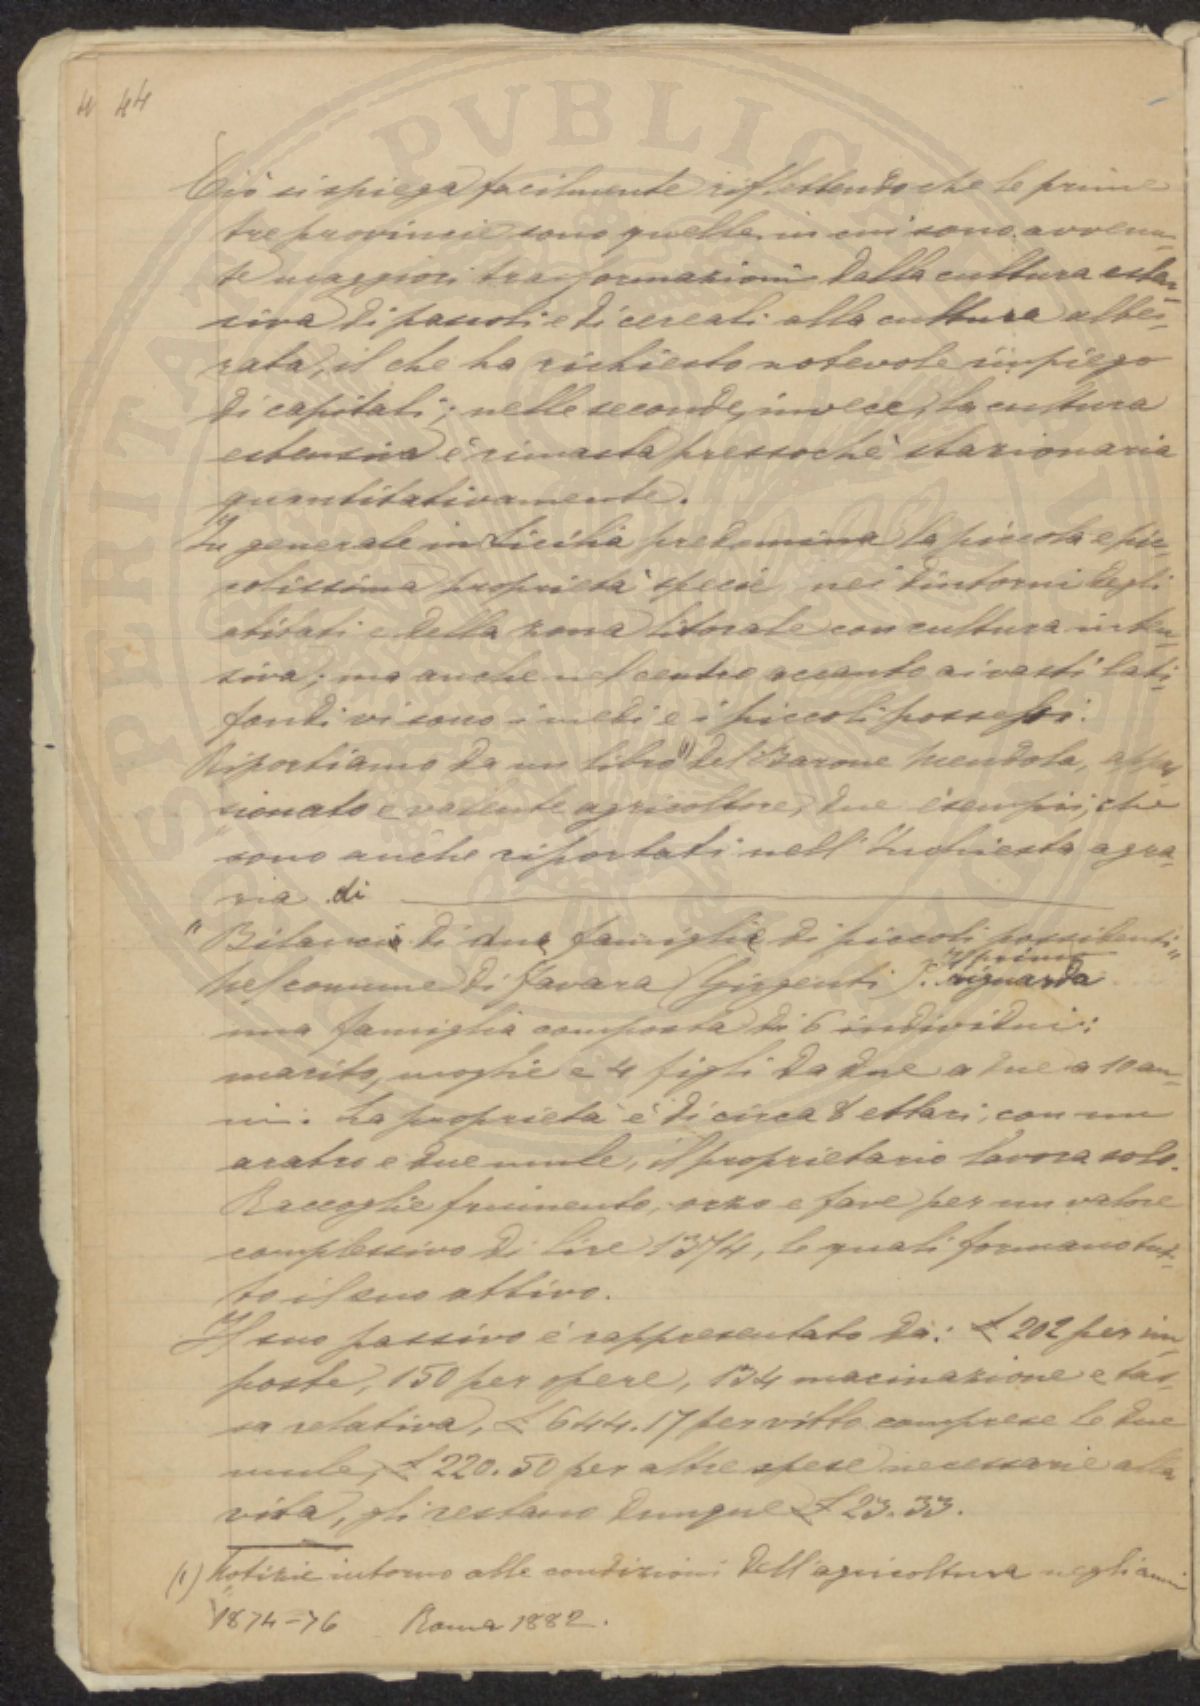 4 44
Ciò si spiega facilmente riflettendo che le prime
tre provincie sono quelle in cui sono avvenu-
te maggiori trasformazioni dalla cultura esten-
siva di pascoli e di cereali alla cultura albe-
rata, il che ha richiesto notevole impiego
di capitali; nelle seconde, invece, la cultura
estensiva è rimasta pressochè stazionaria
quantitativamente.
In generale in Sicilia predomina la piccola e pic-
colissima proprietà specie nei dintorni degli
abitati e della zona litorale con cultura inten-
siva; ma anche nel centro accanto ai vasti lati-
fondi vi sono i medi e i piccoli possessi.
Riportiamo da un libro (1) del Barone Mendola, appas-
sionato e valente agricoltore, due esempi, che
sono anche riportati nell'Inchiesta agra-
ria di
"Bilancio di due famiglie di piccoli possidenti"
nel comune di Favara (Girgenti). Il primo riguarda
una famiglia composta di 6 individui:
marito, moglie e 4 figli da due a due a 10 an-
ni. La proprietà è di circa 8 ettari, con un
aratro e due mule, il proprietario lavora solo.
Raccoglie frumento, orzo e fave per un valore
complessivo di lire 1374, le quali formano tut-
to il suo attivo.
Il suo passivo è rappresentato da: £ 202 per im-
poste, 150 per opere, 134 macinazione e tas-
sa relativa, £ 644.17 per vitto comprese le due
mule, £ 220.50 per altre spese necessarie alla
vita, gli restano dunque £ 23.33.
(1) Notizie intorno alle condizioni dell'agricoltura negli anni
1874-76 Roma 1882.
PVBLIC
SPERITAT